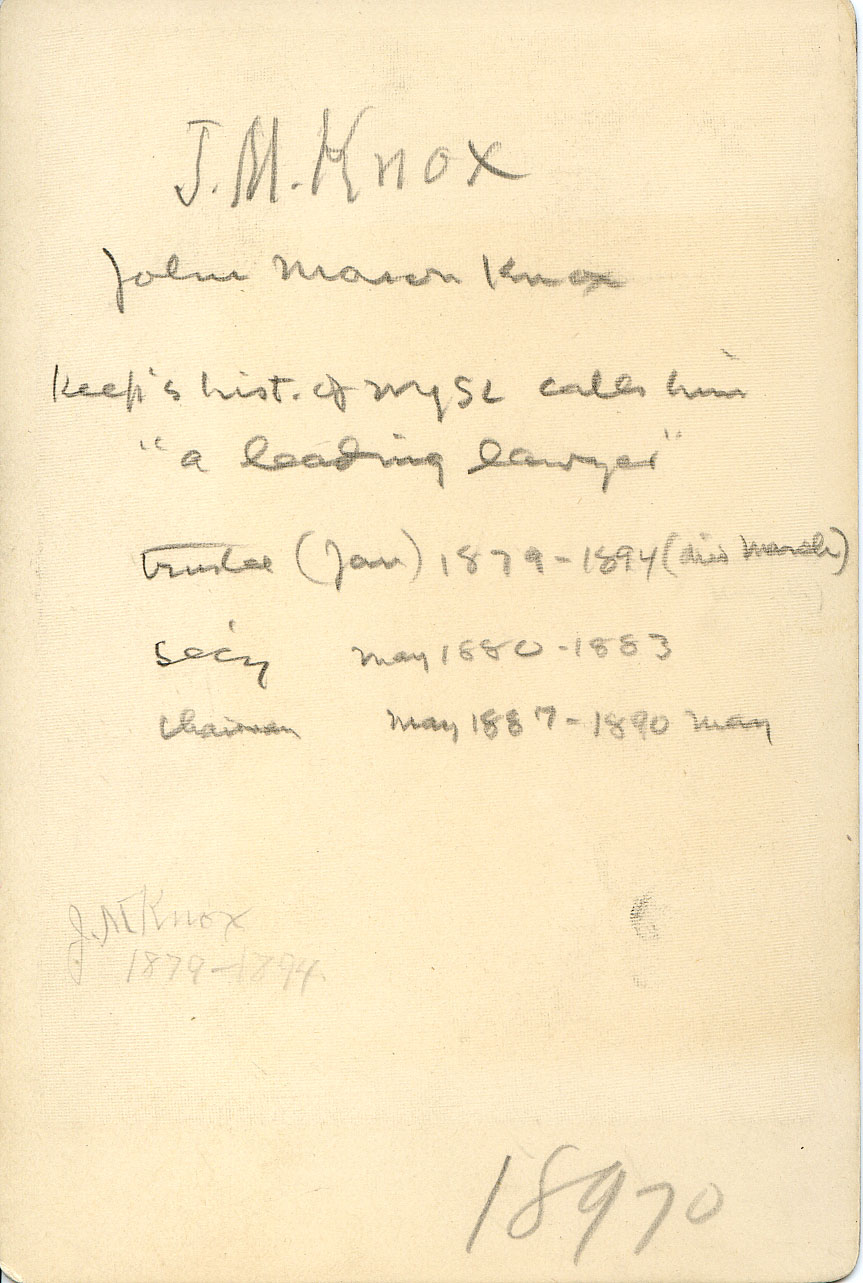 J. M. Knox
John Mason Knox
Keep's hist. of NYSL calls him
"a leading lawyer"
trustee (Jan) 1879-1894 (died March)
sec'y May 1880-1883
chairman May 1887-1890 May
J. M Knox
1879-1894
18970